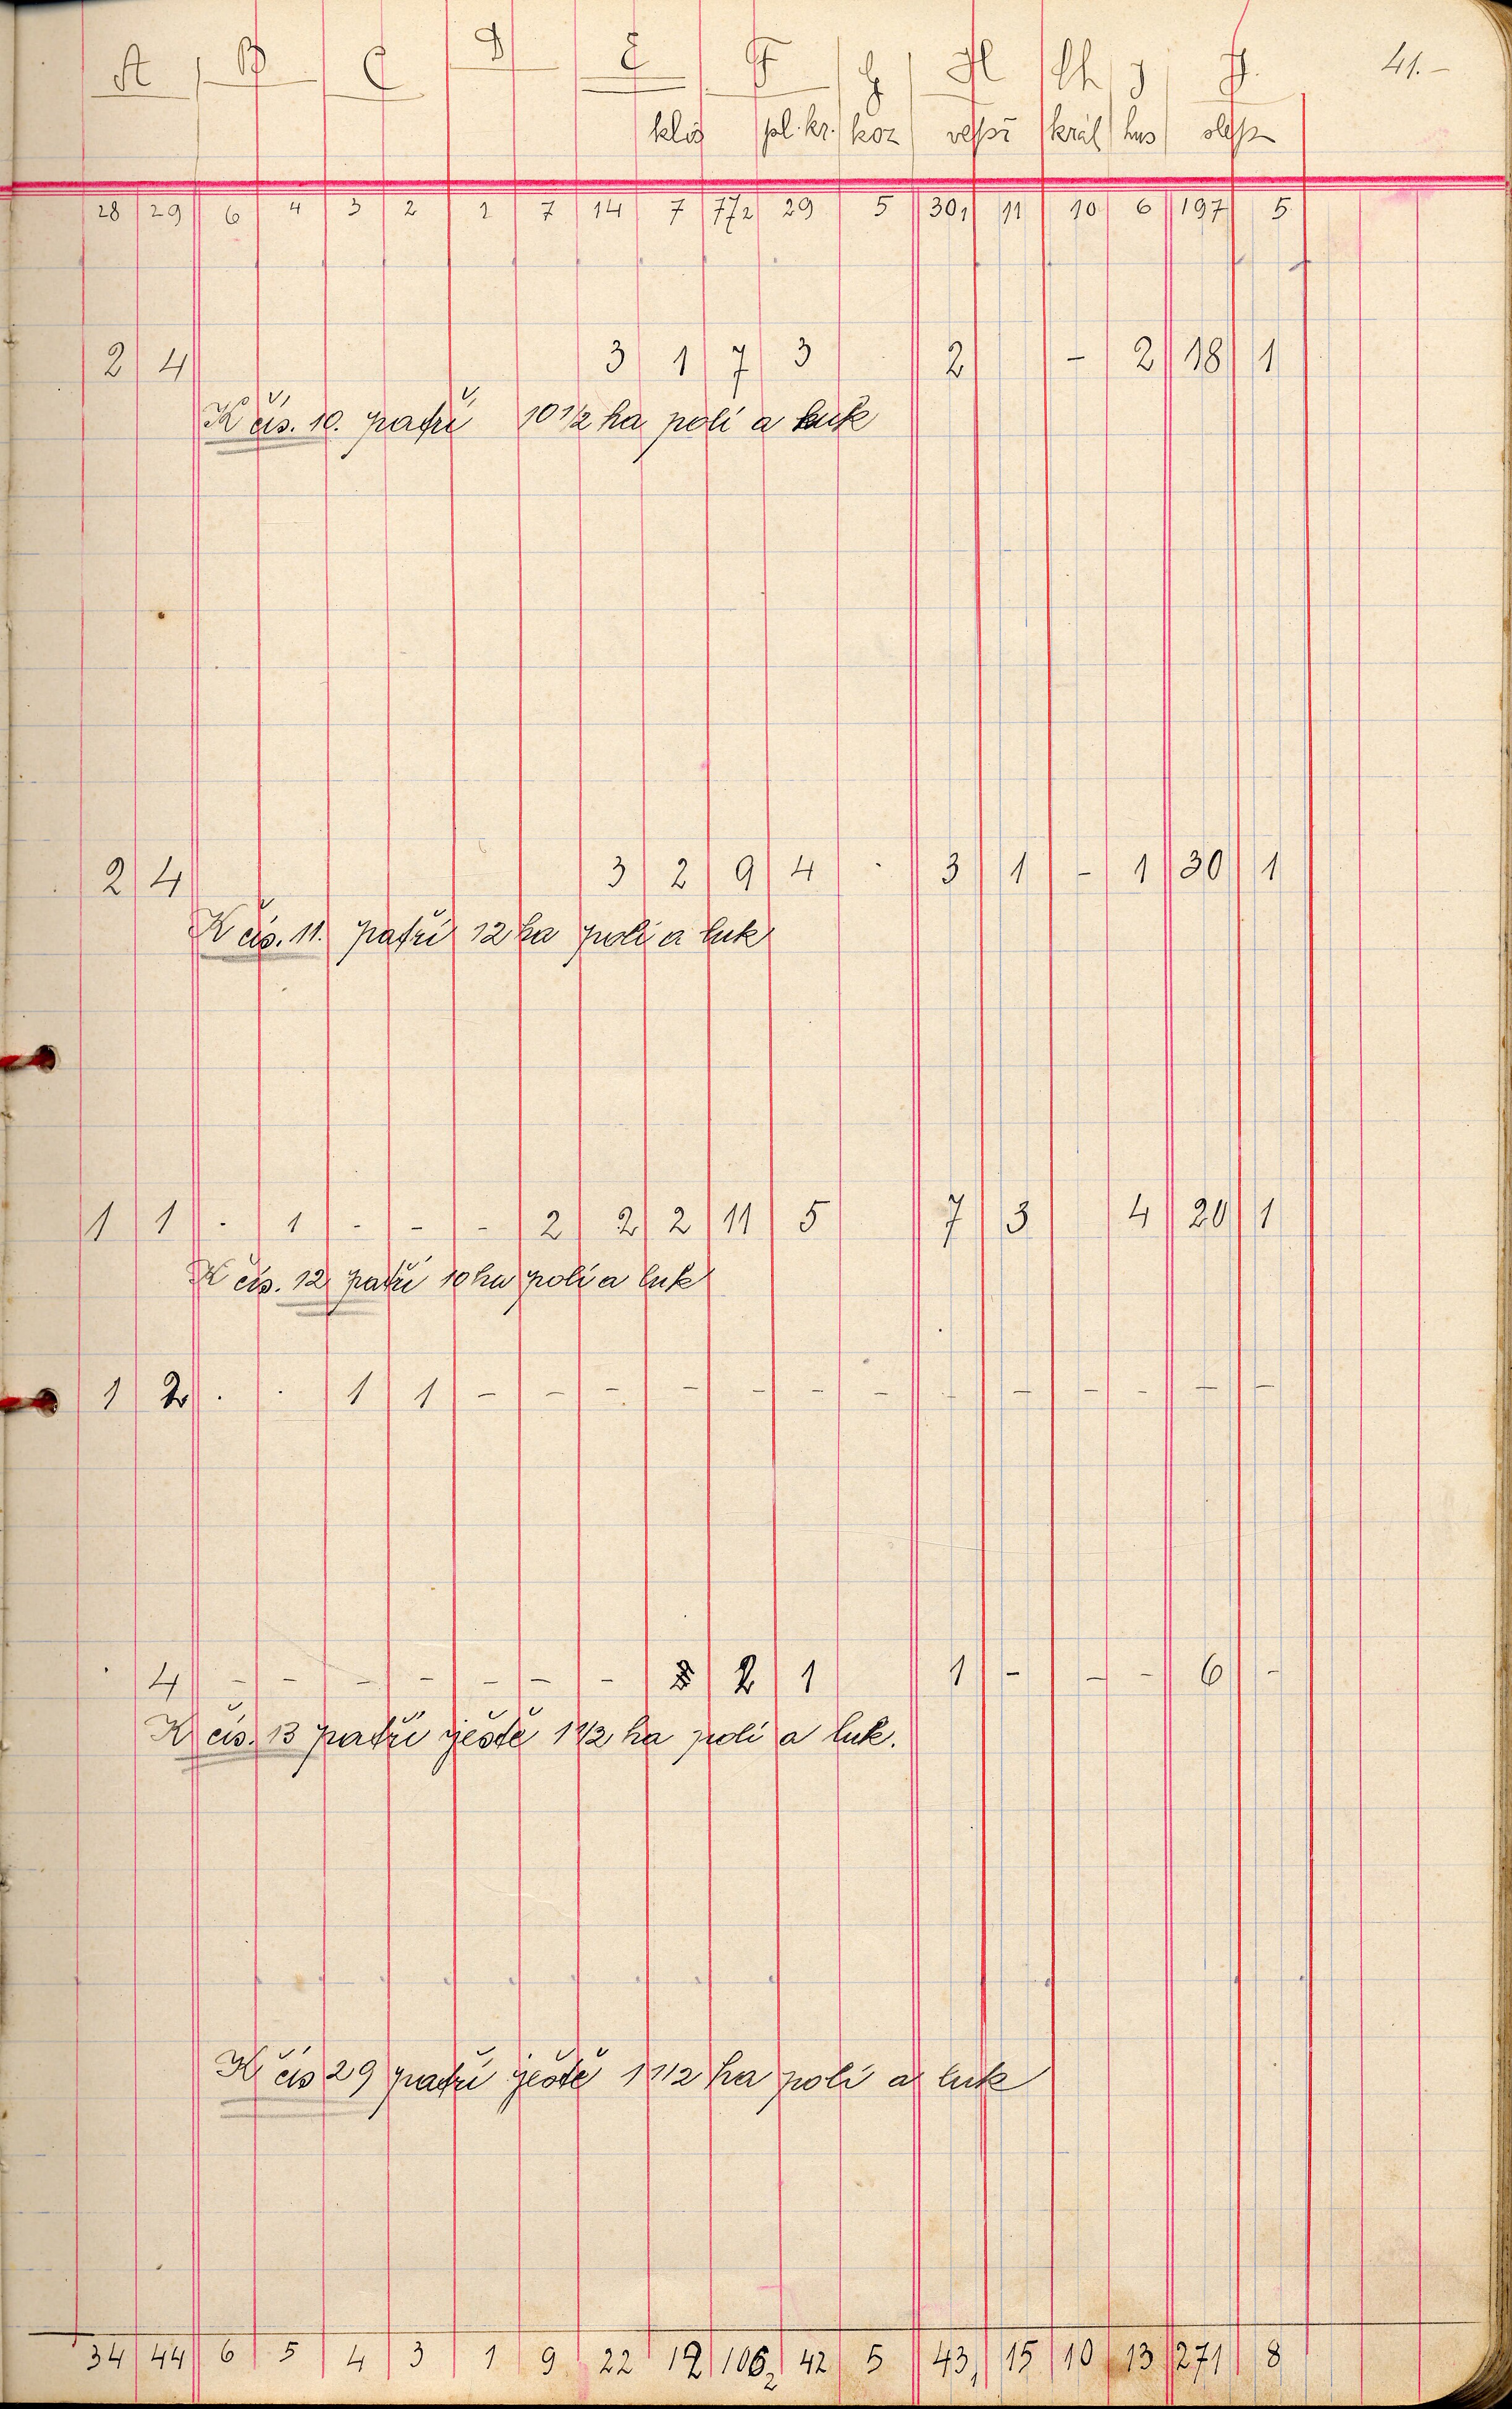 A B C D E F G H Ch J I. 41.-
klis pl. kr. koz vepř král hus slep
28 29 6 4 3 2 1 7 14 7 77 2 29 5 30, 11 10 6 197 5
2 4 3 1 7 3 2 - 2 18 1
K čís. 10. patří 10 1/2 ha polí a luk
2 4 3 2 9 4 · 3 1 - 1 30 1
K čís. 11. patří 12 ha polí a luk
1 1 - 1 - - - 2 2 2 11 5 7 3 4 20 1
K čís. 12 patří 10 ha polí a luk
1 2 · · 1 1 - - - - - - - - - - - - -
· 4 - - - - - - - 2 1 1 - - - 6 -
K čís. 13 patří ještě 1 1/2 ha polí a luk.
K čís 29 patří ještě 1 1/2 ha polí a luk
34 44 6 5 4 3 1 9 22 12 106 2 42 5 43, 15 10 13 271 8